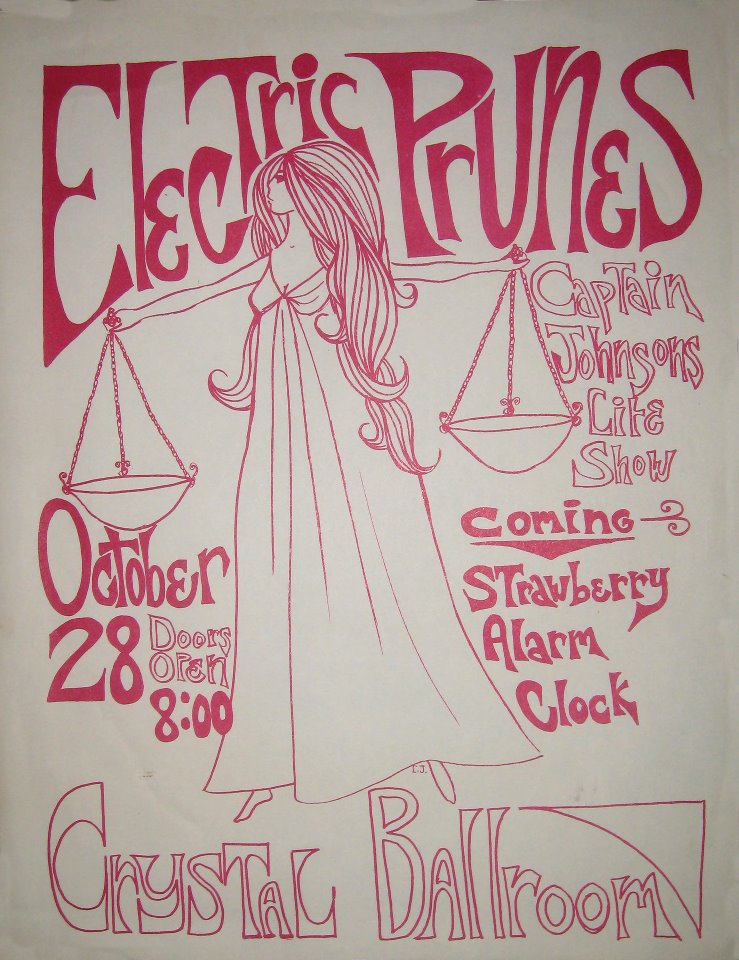 Electric Prunes
Captain
Johnsons
Lite
Show
Coming
Strawberry
Alarm
Clock
October
28
Doors
Open
8:00
L.J.
Crystal Ballroom